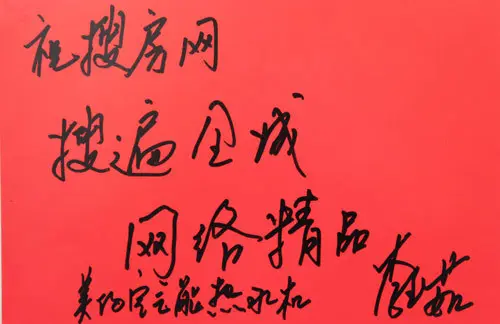 祝搜房网
搜遍全城
网络精品
美的空气能热水机